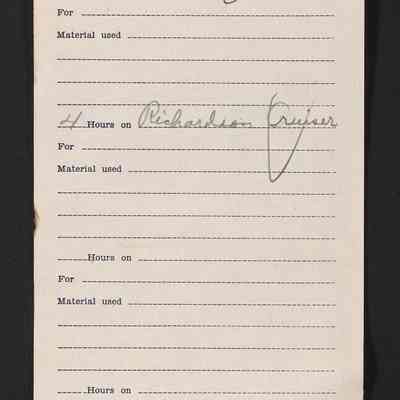 For
Material used
4 Hours on Richardson Cruiser
For
Material used
Hours on
For
Material used
Hours on